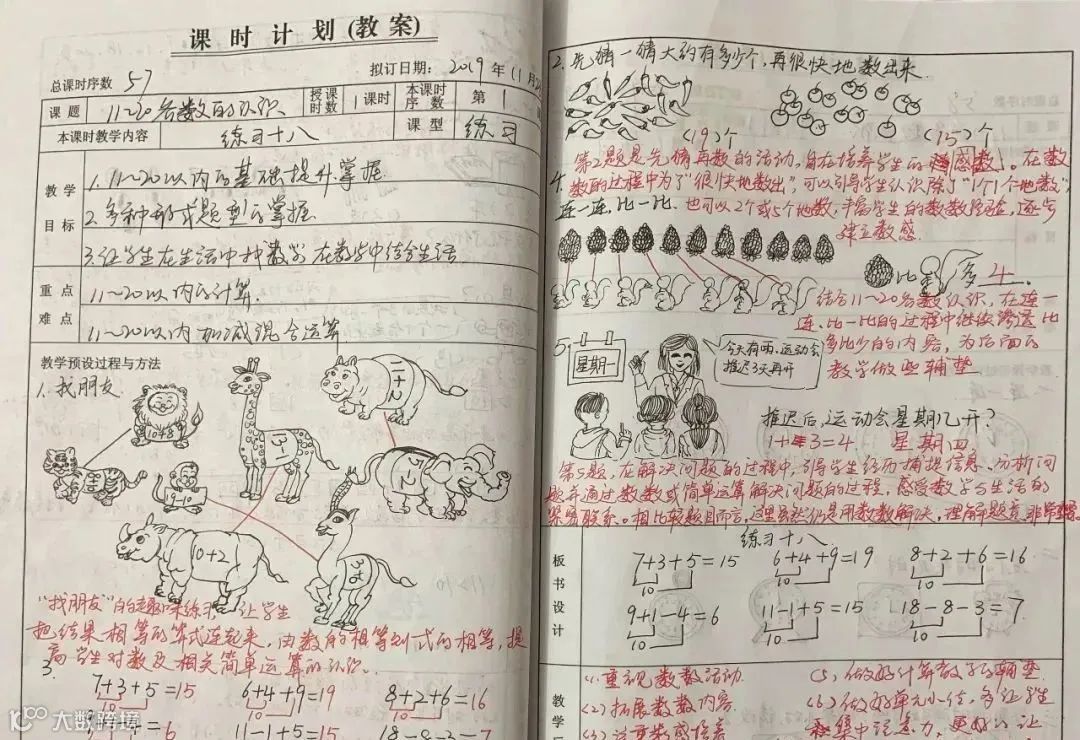 课时计划(教案)
总课时序数 57
拟订日期: 2019年11月
课题 11~20各数的认识 授课时数 1课时 本课时序数 第1
本课时教学内容 练习十八 课型 练习
教学目标
1. 11~20以内的基础提升掌握.
2. 多种形式题型的掌握.
3. 让学生在生活中找数学,在教学中结合生活.
重点 11~20以内的计算.
难点 11~20以内加减混合运算
教学预设过程与方法
1. 找朋友.
10+8
13-1
11+2
15-2
10+2
"找朋友"的趣味练习,让学生
把结果相等的算式连起来,由数的相等到式的相等,提
高学生对数及相关简单运算的认识.
3.
7+3+5=15 6+4+9=19 8+2+6=16
10 10 10
=6 11-1+5=15 18-8-3=7
2. 先猜一猜大约有多少个,再很快地数出来.
(19)个 (15)个
第2题是先猜再数的活动,旨在培养学生的数感。在数
数的过程中为了"很快地数出",可以引导学生认识除了"1个1个地数",
4.
连一连,比一比. 也可以2个或5个地数,丰富学生的数数经验,逐步
建立数感.
比 多4.
结合11~20各数认识,在连一
连、比一比的过程中继续渗透比
多比少的内容,为后面的
教学做些辅垫.
5.
星期一
今天有雨,运动会
推迟3天再开
推迟后,运动会星期几开?
1+3=4 星期四
第5题,在解决问题的过程中,引导学生经历捕捉信息、分析问
题并通过数数或简单运算解决问题的过程,感受数学与生活的
紧密联系。相比较题目而言,这里虽然仍是用数数解决,理解题意非常重要
板书设计
练习十八
7+3+5=15 6+4+9=19 8+2+6=16
10 10 10
9+1-4=6 11-1+5=15 18-8-3=7
10 10 10
教学
(1)重视数数活动. (5)做好计算教学的辅垫.
(2)拓展数数内容. (6)做好单元小结,多让学生
(3)注重数感培养 集中注意力,更好以让
大数跨境